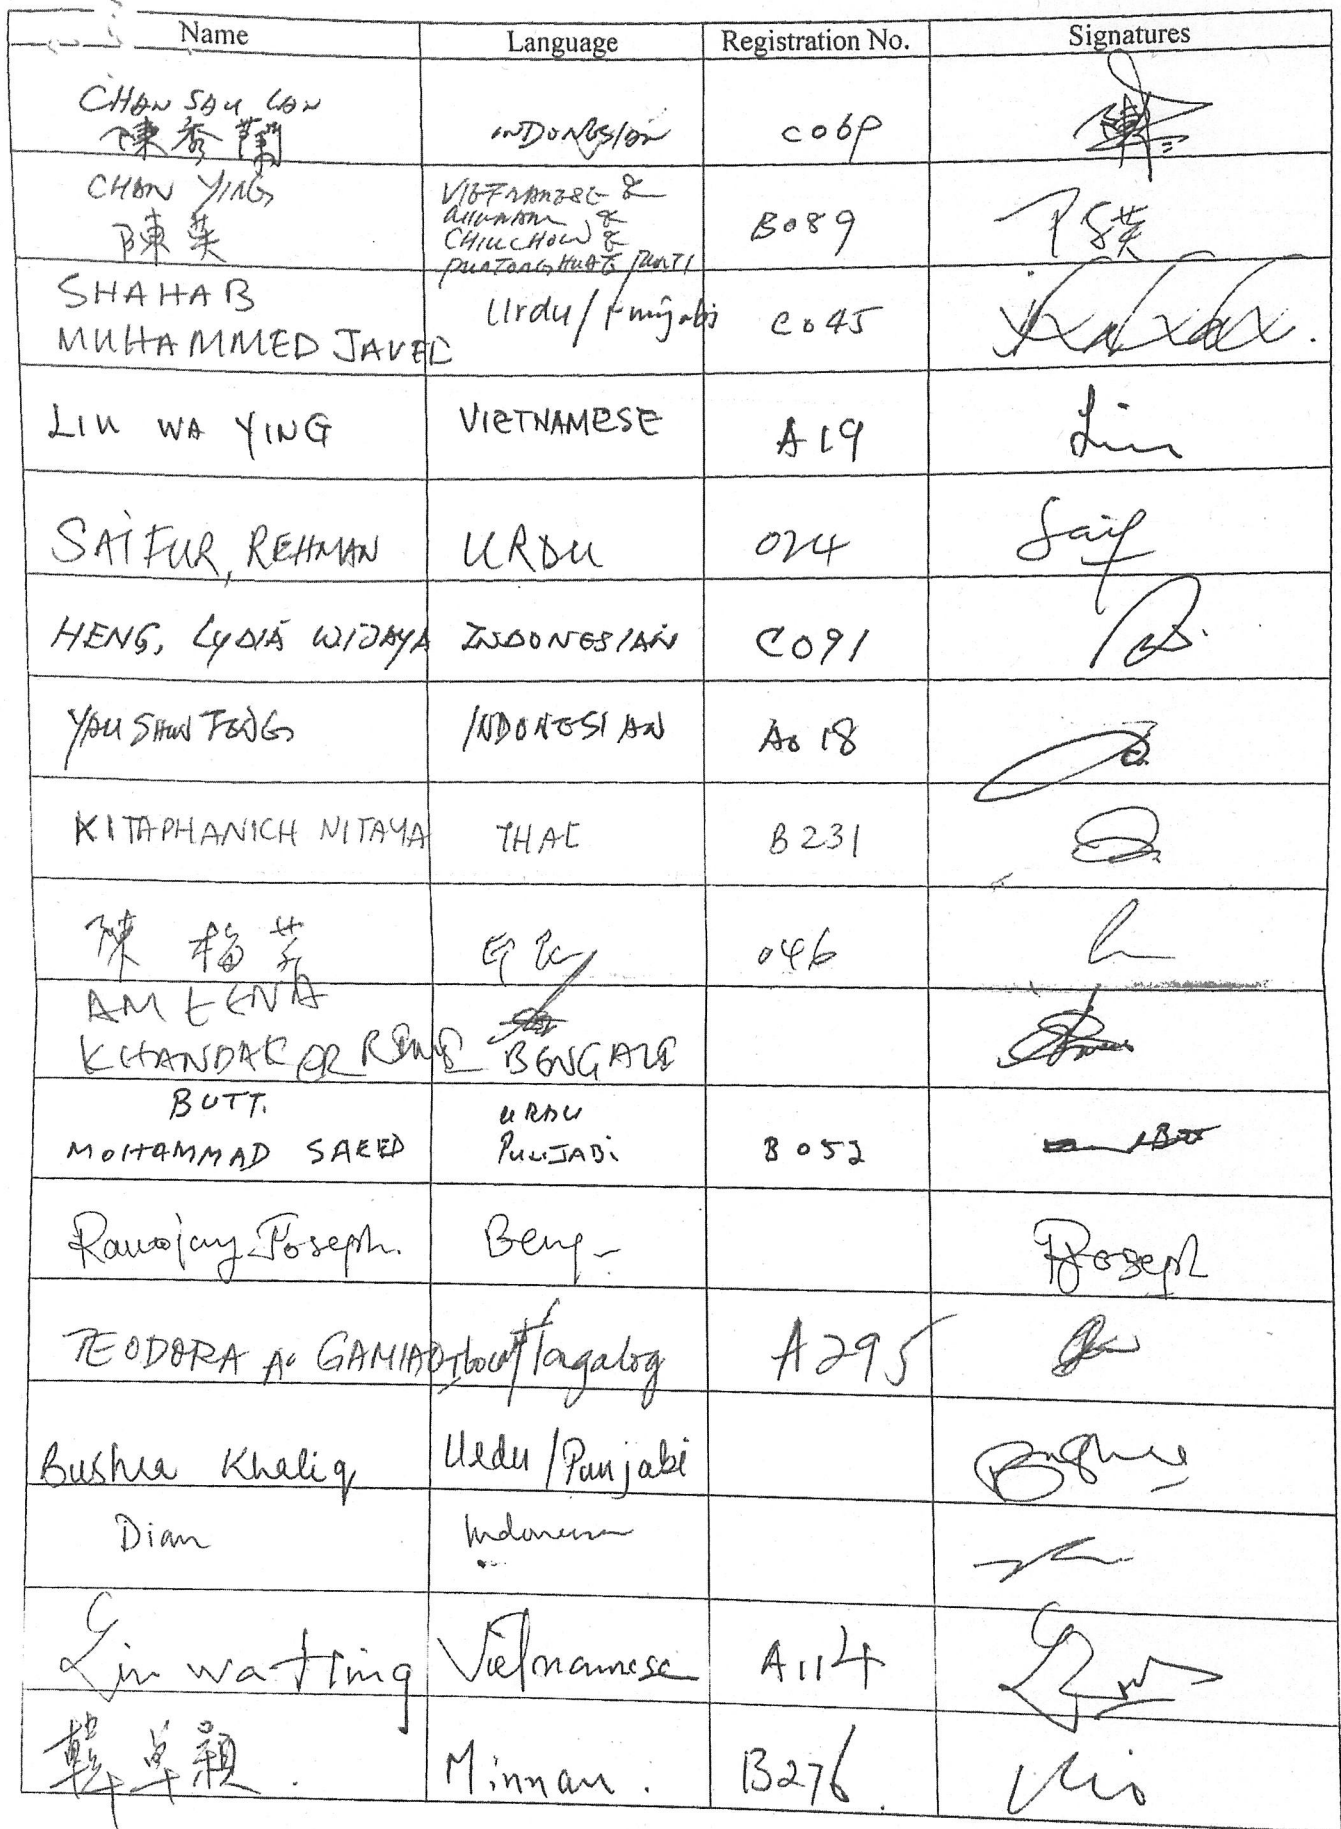 Name Language Registration No. Signatures
CHAN SAU LAN
陳秀蘭 INDONESIAN C069
CHAN YING
陳英 VIETNAMESE & B089
CHIUCHOW &
SHAHAB
MUHAMMED JAVED Urdu / Punjabi C045
LIU WA YING VIETNAMESE A19 Liu
SAIFUR, REHMAN URDU 024 Saif
HENG, LYDIA WIJAYA INDONESIAN C091
YAU SHUN TONG INDONESIAN A018
KITAPHANICH NITAYA THAI B231
陳 梅芳 046
AMEENA
KHANDAKER BENGALI
BUTT. URDU
MOHAMMAD SAEED PUNJABI B052
Joseph. Beng- Joseph
TEODORA A. GAMIAO Tagalog A295
Bushra Khaliq Urdu / Punjabi
Dian
Liu wa ting Vietnamese A114
卓穎. Minnan. B276.